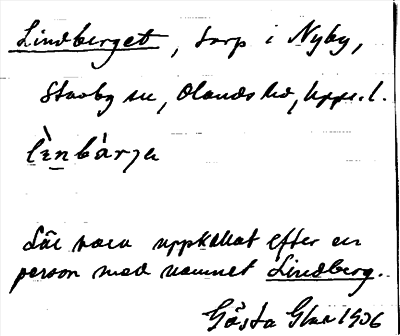 Lindberget, torp i Nyby,
Stavby sn, Olands hd, Upps. l.
lὲnbàrja
Lär vara uppkallat efter en
person med namnet Lindberg.
Gösta 1936